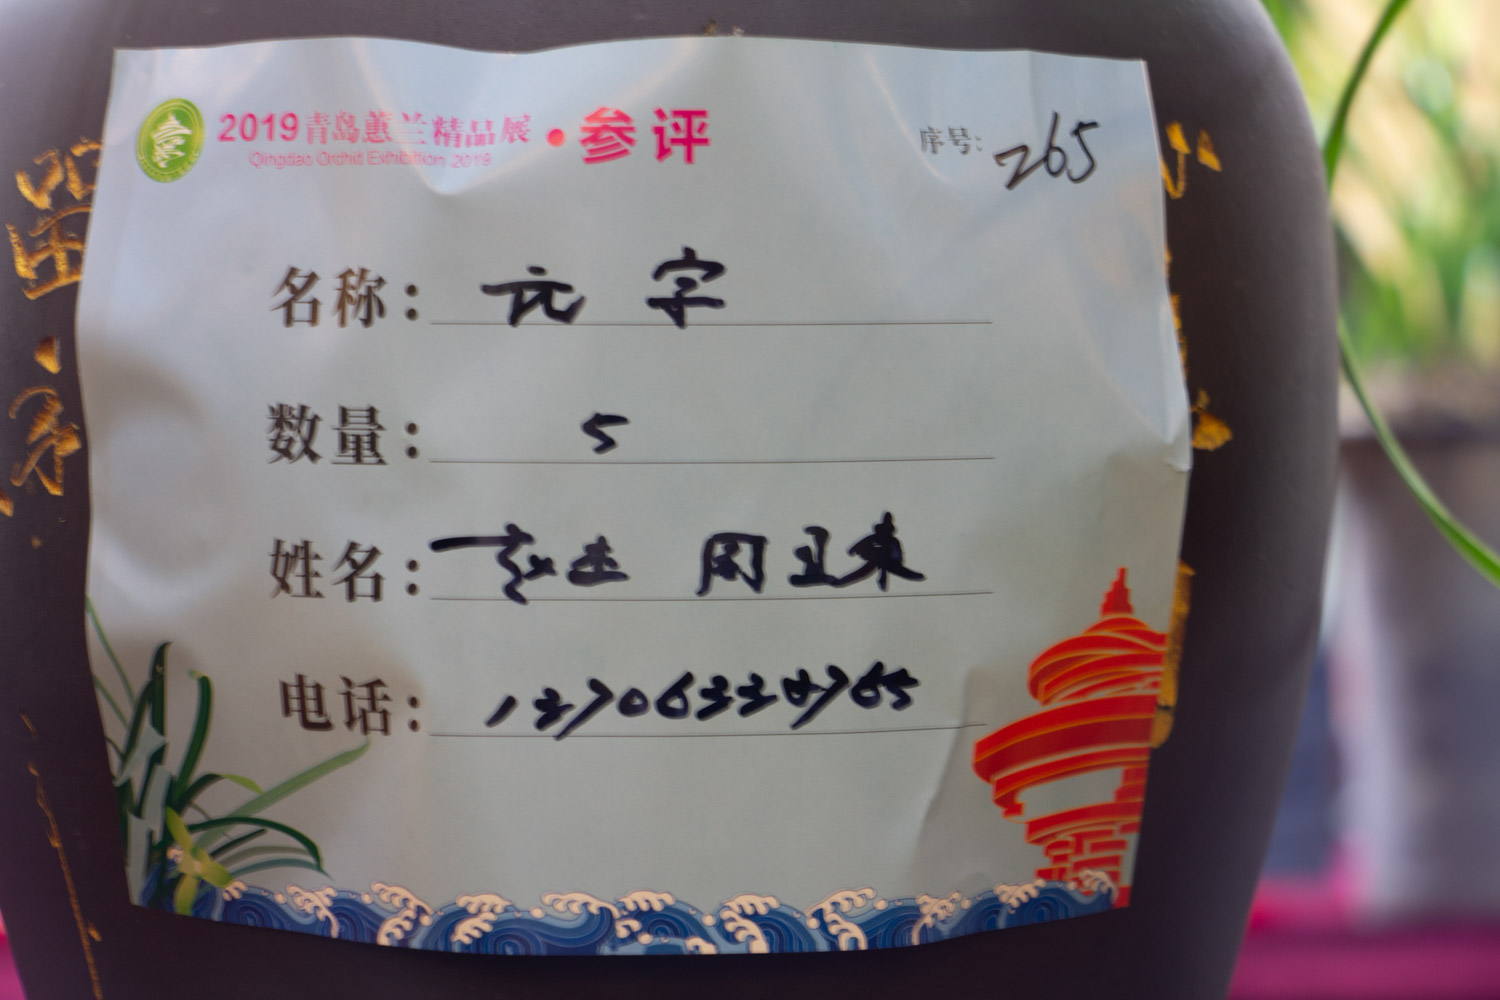 2019青岛蕙兰精品展·参评
Qingdao Orchid Exhibition 2019
序号: 265
名称: 元字
数量: 5
姓名: 周且来
电话: